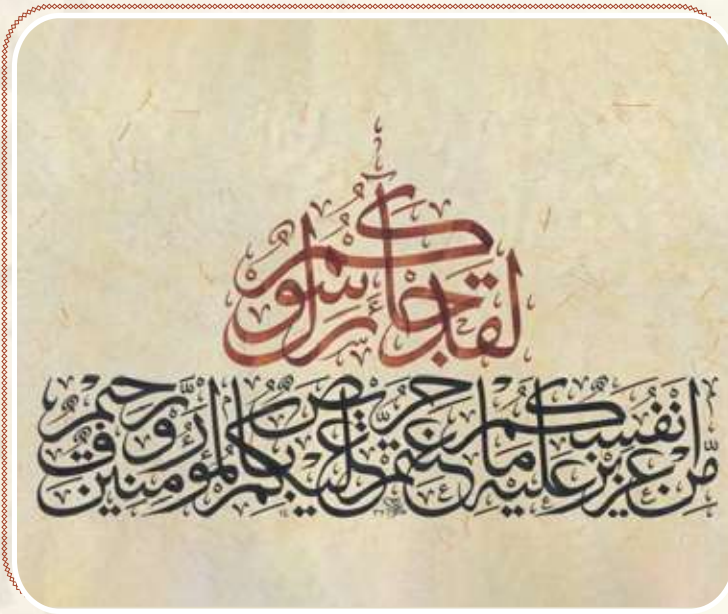 لقد جاءكم رسول
من انفسكم عزيز عليه ما عنتم حريص عليكم بالمؤمنين رؤوف رحيم